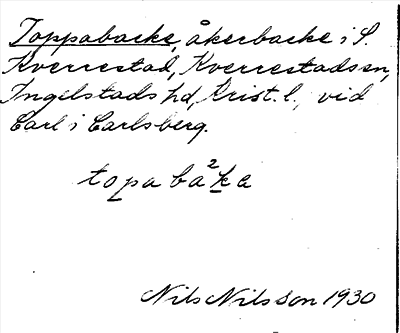 Toppabacke, åkerbacke i S.
Kverrestad, Kverrestads sn,
Ingelstads hd, Krist. l., vid
Carl i Carlsberg.
topa ba²ka
Nils Nilsson 1930